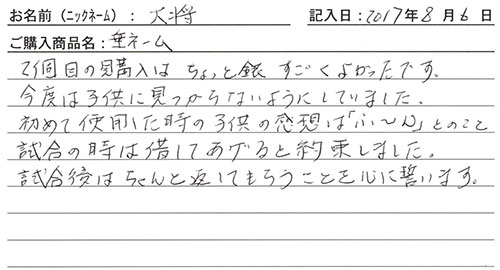 お名前（ニックネーム）： 大将 記入日：2017年8月6日
ご購入商品名：垂ネーム
2個目の購入は ちょっと銀 すごくよかったです。
今度は子供に見つからないようにしていました。
初めて使用した時の子供の感想は「ふ〜ん」とのこと
試合の時は借してあげると約束しました。
試合後はちゃんと返してもらうことを心に誓います。